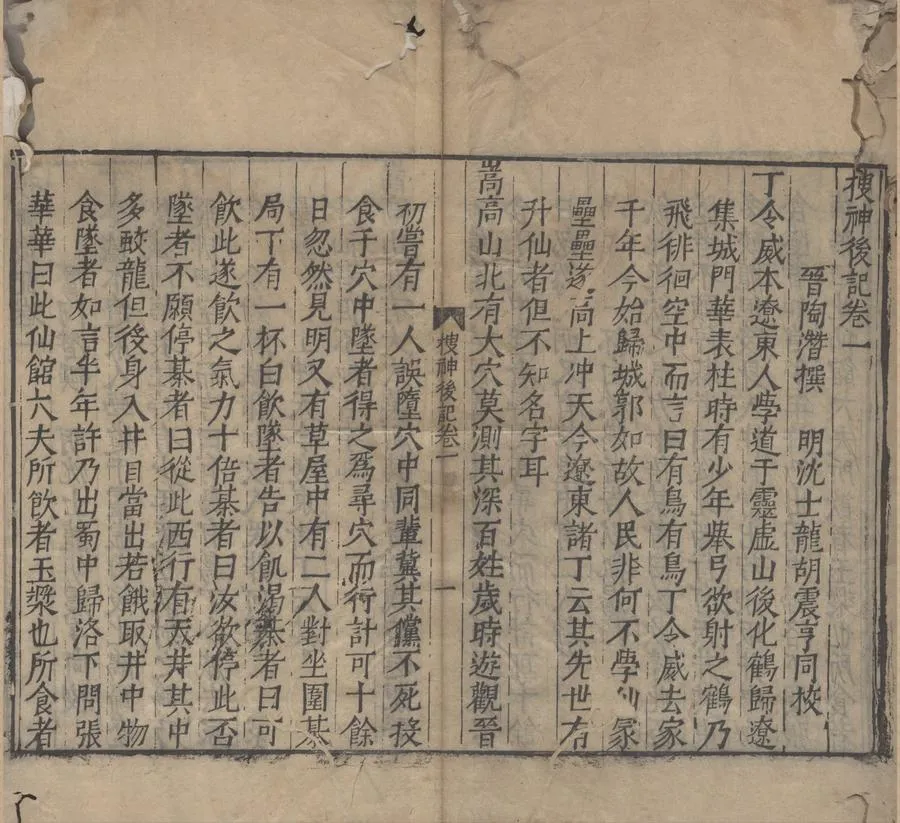 搜神後記卷一
晉陶潛撰　明沈士龍胡震亨同校
丁令威本遼東人學道于靈虛山後化鶴歸遼
集城門華表柱時有少年舉弓欲射之鶴乃
飛徘徊空中而言曰有鳥有鳥丁令威去家
千年今始歸城郭如故人民非何不學仙冢
壘壘遂高上冲天今遼東諸丁云其先世有
升仙者但不知名字耳
嵩高山北有大穴莫測其深百姓歲時遊觀晉
搜神後記卷一
一
初嘗有一人誤墮穴中同輩冀其儻不死投
食于穴中墜者得之爲尋穴而行計可十餘
日忽然見明又有草屋中有二人對坐圍棊
局下有一杯白飲墜者告以飢渴棊者曰可
飲此遂飲之氣力十倍棊者曰汝欲停此否
墜者不願停棊者曰從此西行有天井其中
多蛟龍但投身入井自當出若餓取井中物
食墜者如言半年許乃出蜀中歸洛下問張
華華曰此仙館大夫所飲者玉漿也所食者